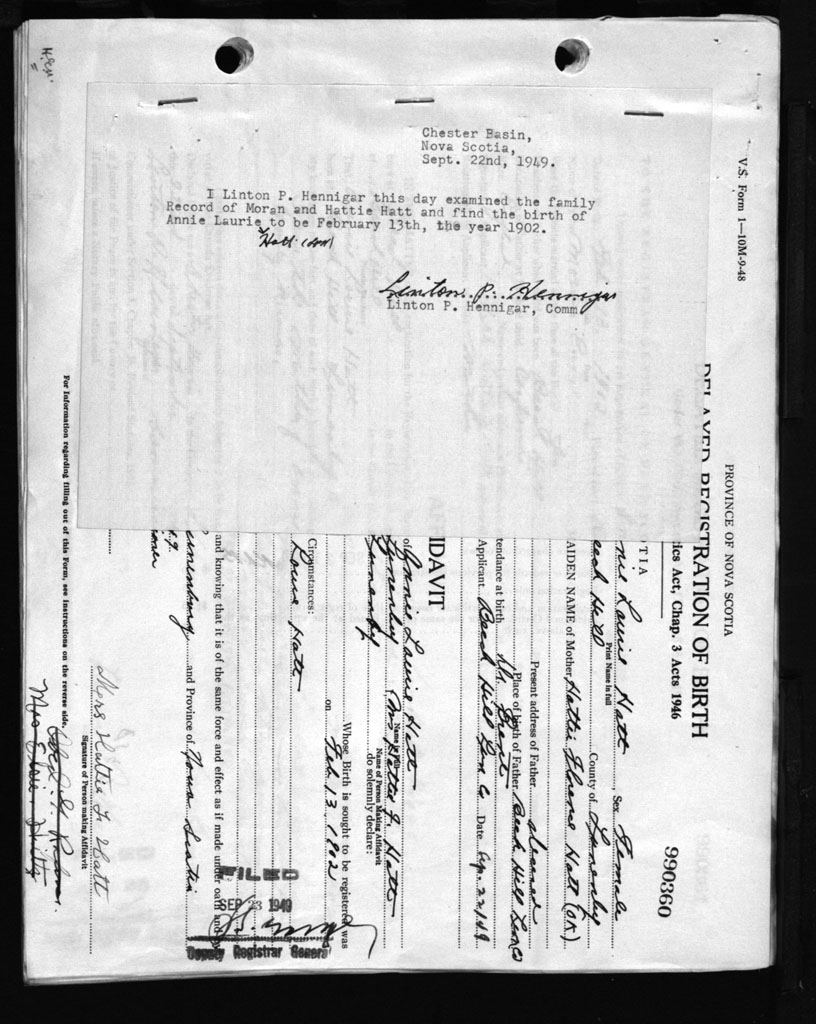 Chester Basin,
Nova Scotia,
Sept. 22nd, 1949.
I Linton P. Hennigar this day examined the family
Record of Moran and Hattie Hatt and find the birth of
Annie Laurie to be February 13th, the year 1902.
Hatt
Linton P. Hennigar
Linton P. Hennigar, Comm
V.S. Form 1—10M-9-48
PROVINCE OF NOVA SCOTIA
DELAYED REGISTRATION OF BIRTH
tics Act, Chap. 3 Acts 1946
990360
TIA
nie Laurie Hatt, Sex Female
Print Name in full
eech Hill County of Lunenburg
AIDEN NAME of Mother Hattie Florence Hatt (OK)
Present address of Father deceased
Place of birth of Father Beech Hill Lun Co
tendance at birth Dr.
Applicant Beech Hill Lun Co Date Sep. 22/49
IDAVIT
of Annie Laurie Hatt
Name in full
Lunenburg Mrs Hattie F. Hatt
Name of Person Making Affidavit
Lunenburg do solemnly declare:
Whose Birth is sought to be registered was
on Feb 13 1902
Circumstances:
Louis Hatt
and knowing that it is of the same force and effect as if made under oath and
Lunenburg and Province of Nova Scotia
FILED
SEP 23 1949
Deputy Registrar General
Mrs Hattie F. Hatt
Signature of Person making Affidavit
For Information regarding filling out of this Form, see instructions on the reverse side.
Mrs Elsie Hiltz